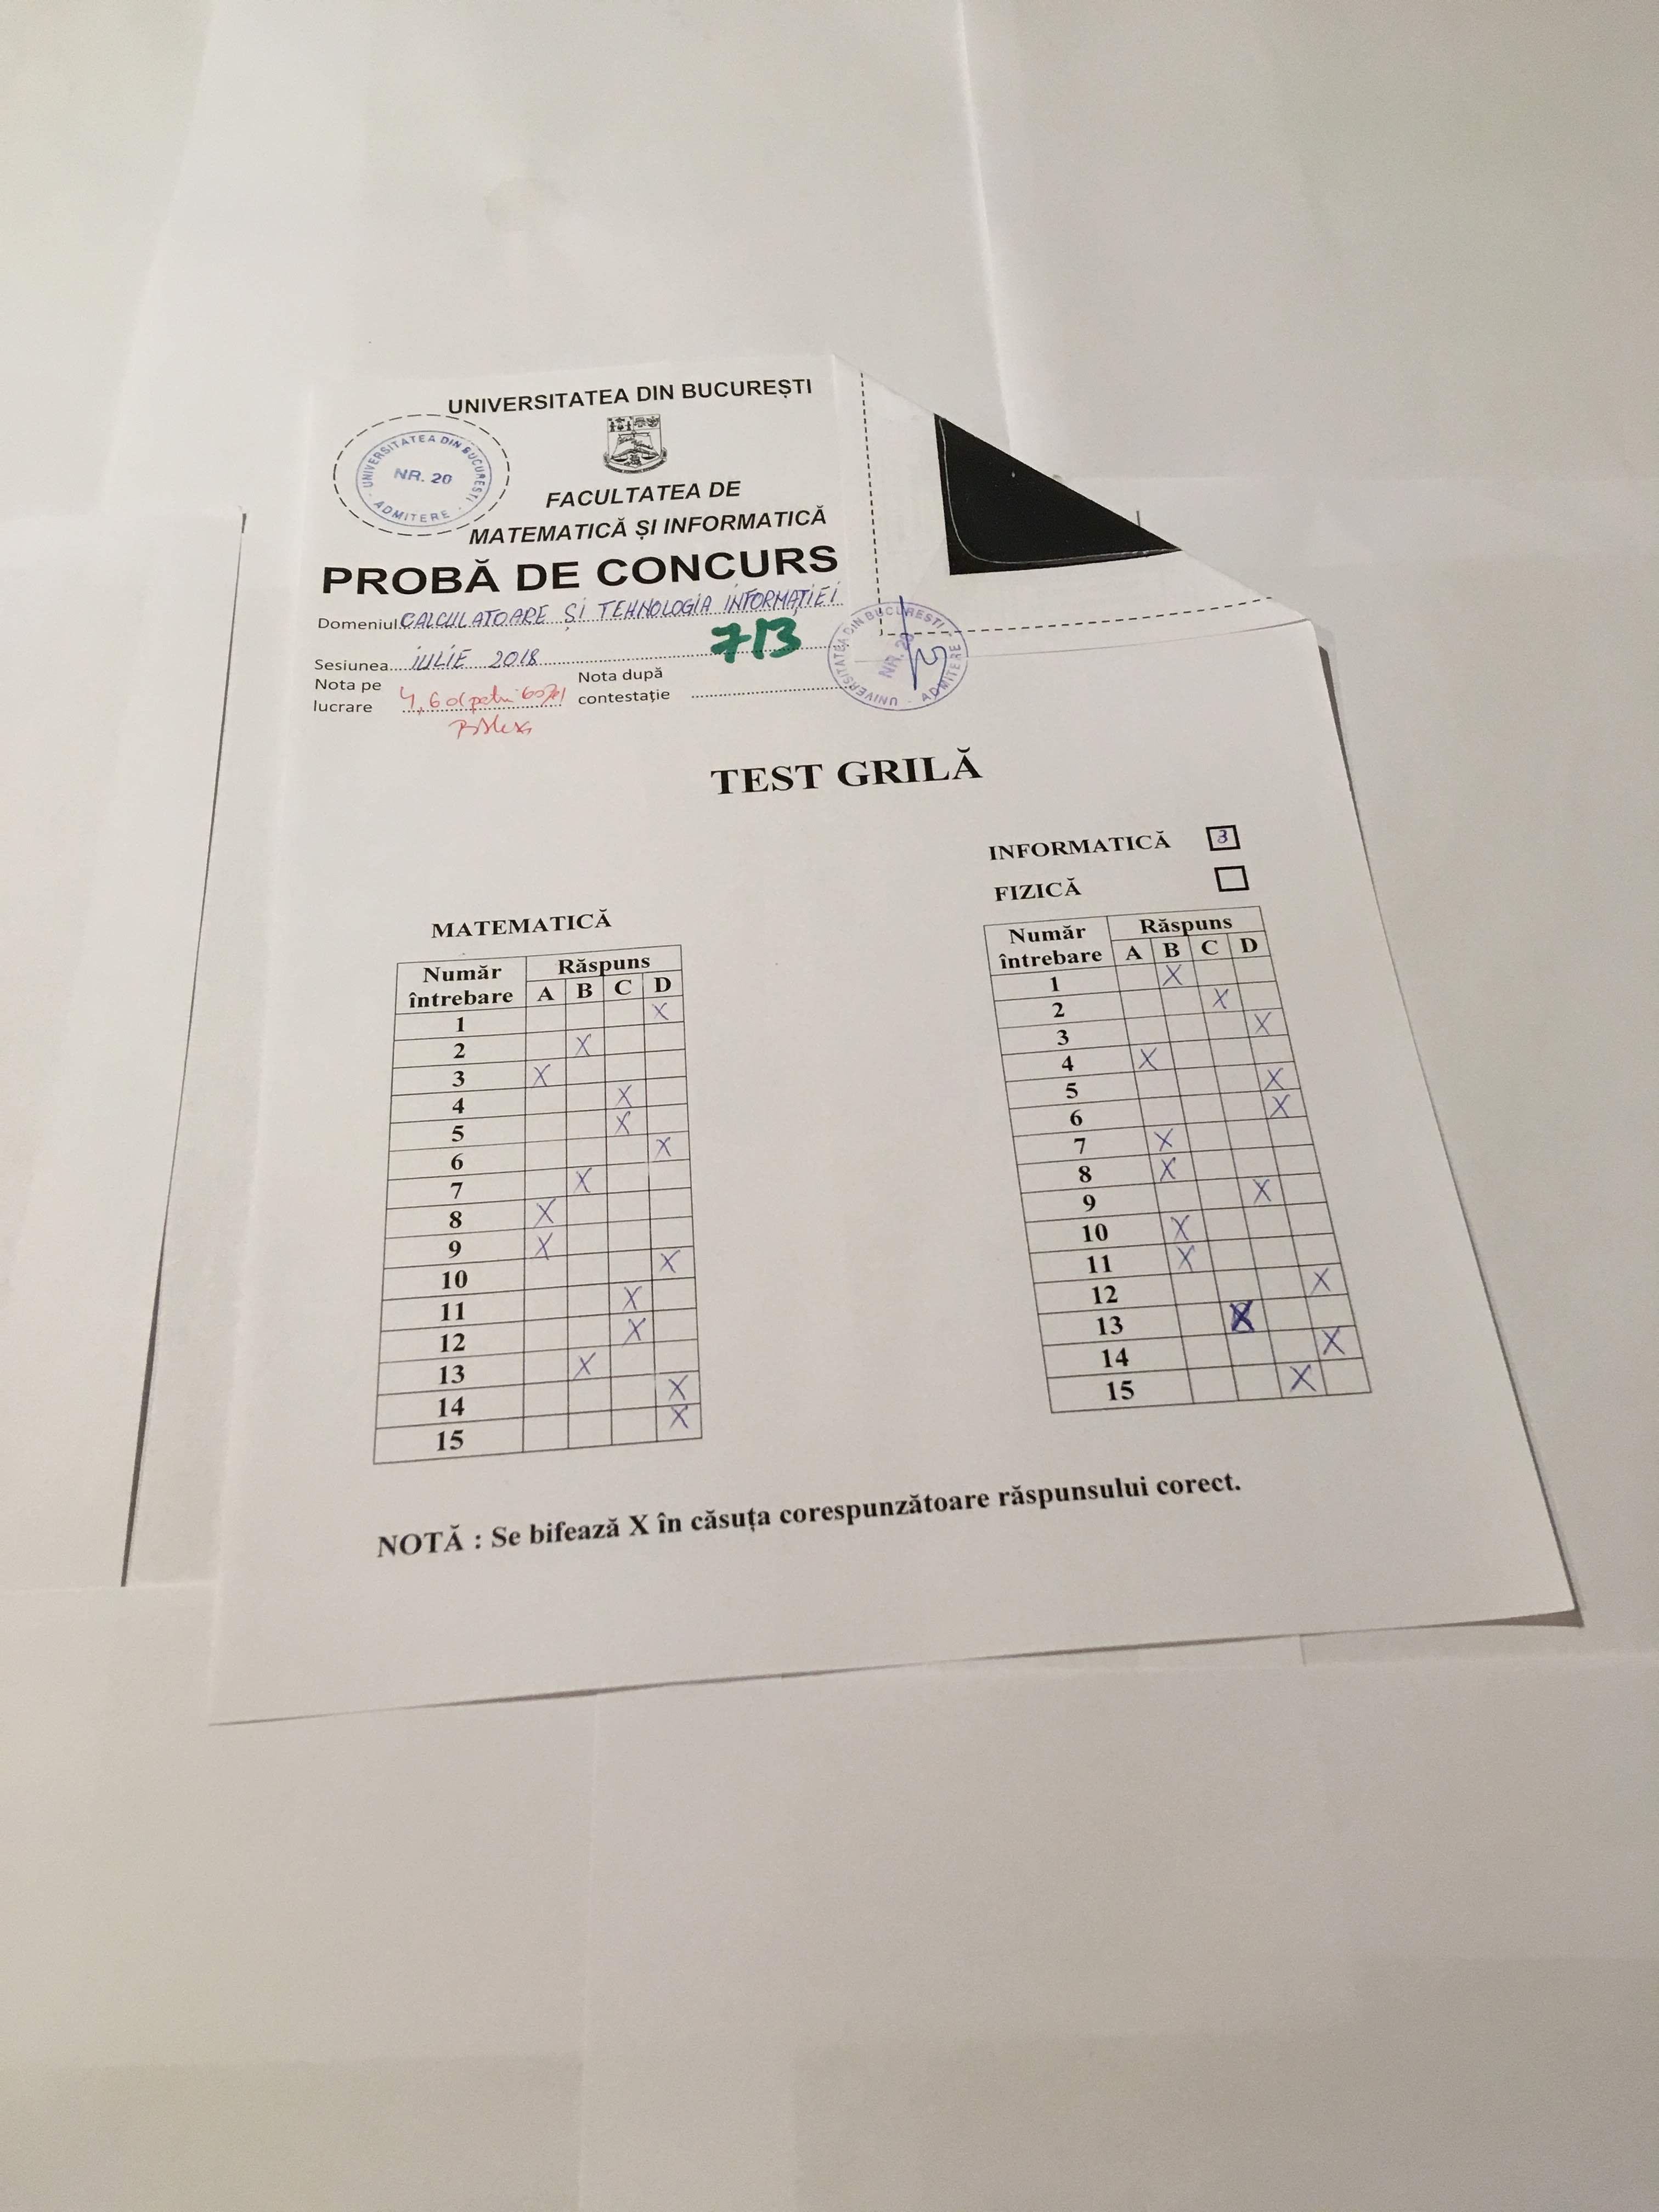 UNIVERSITATEA DIN BUCUREȘTI
UNIVERSITATEA DIN BUCUREȘTI
NR. 20
ADMITERE
FACULTATEA DE
MATEMATICĂ ȘI INFORMATICĂ
PROBĂ DE CONCURS
Domeniul CALCULATOARE ȘI TEHNOLOGIA INFORMAȚIEI
713
Sesiunea IULIE 2018
Nota pe lucrare 4,60
Nota după contestație
UNIVERSITATEA DIN BUCUREȘTI
NR. 20
ADMITERE
TEST GRILĂ
INFORMATICĂ 3
FIZICĂ
MATEMATICĂ
Număr întrebare Răspuns
A B C D
1 X
2 X
3 X
4 X
5 X
6 X
7 X
8 X
9 X
10 X
11 X
12 X
13 X
14 X
15 X
Număr întrebare Răspuns
A B C D
1 X
2 X
3 X
4 X
5 X
6 X
7 X
8 X
9 X
10 X
11 X
12 X
13 X
14 X
15 X
NOTĂ : Se bifează X în căsuța corespunzătoare răspunsului corect.